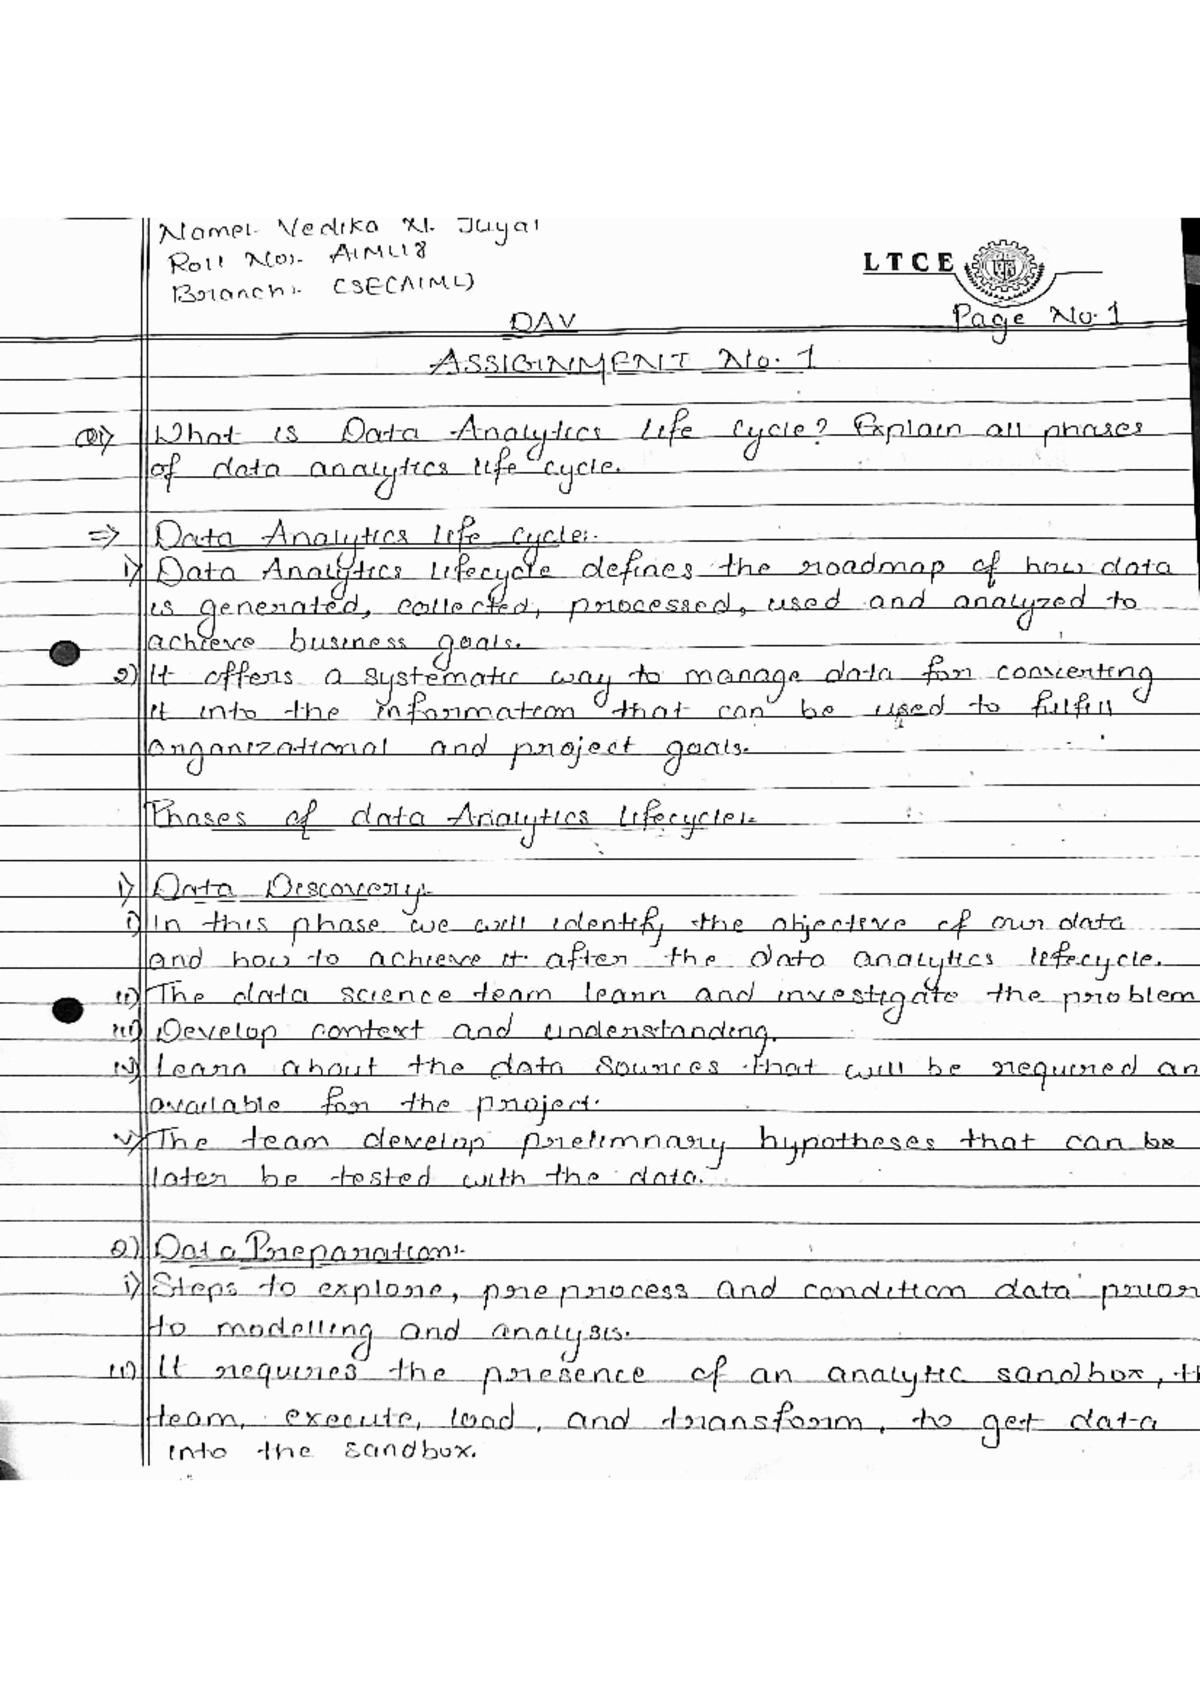 Name:- Vedika N. Juyal
Roll No:- AIML18
Branch:- CSE(AIML)
LTCE
DAV
Page No. 1
ASSIGNMENT No. 1
Q1) What is Data Analytics life cycle? Explain all phases
of data analytics life cycle.
=> Data Analytics life cycle:-
1) Data Analytics lifecycle defines the roadmap of how data
is generated, collected, processed, used and analyzed to
achieve business goals.
2) It offers a systematic way to manage data for converting
it into the information that can be used to fulfill
organizational and project goals.
Phases of data Analytics lifecycle:-
1) Data Discovery:-
i) In this phase we will identify the objective of our data
and how to achieve it after the data analytics lifecycle.
ii) The data science team learn and investigate the problem
iii) Develop context and understanding.
iv) Learn about the data sources that will be required an
available for the project.
v) The team develop prelimnary hypotheses that can be
later be tested with the data.
2) Data Preparation:-
i) Steps to explore, preprocess and condition data prior
to modelling and analysis.
ii) It requires the presence of an analytic sandbox, th
team, execute, load, and transform, to get data
into the sandbox.